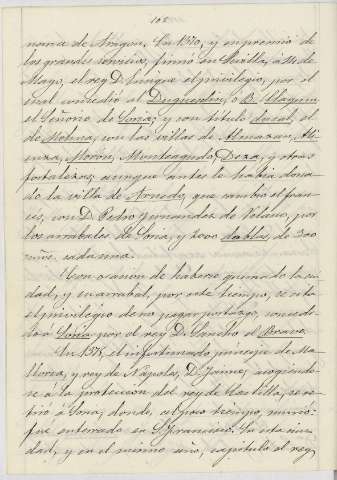 108
narca de Aragon. En 1370, y en premio de
los grandes servicios, firmó en Sevilla, á 4 de
Mayo, el rey D. Enrique el privilegio, por el
cual concedió al Duguesclin, ó B. Claquin
el Señorio de Soria; y con título ducal, el
de Molina, con las villas de Almazan, Ati-
enza, Moron, Monteagudo, Deza, y otras
fortalezas; aunque antes le habia dona-
do la villa de Arnedo, que cambió el fran-
ces, con D. Pedro Fernandez de Velasco, por
los arrabales de Soria, y 2000 doblas, de 300
mrs. cada una.
Con ocasion de haberse quemado la ciu-
dad, y su arrabal, por este tiempo, se cita
el privilegio de no pagar portazgo, conce-
dido á Soria por el rey D. Sancho el Bravo.
En 1375, el infortunado principe de Ma-
llorca, y rey de Nápoles, D. Jaime, acogiendo-
se a la protección del rey de Castilla, se re-
tiró á Soria, donde, al poco tiempo, murió y
fué enterrado en S. Francisco. En esta ciu-
dad, y en el mismo año, capituló el rey